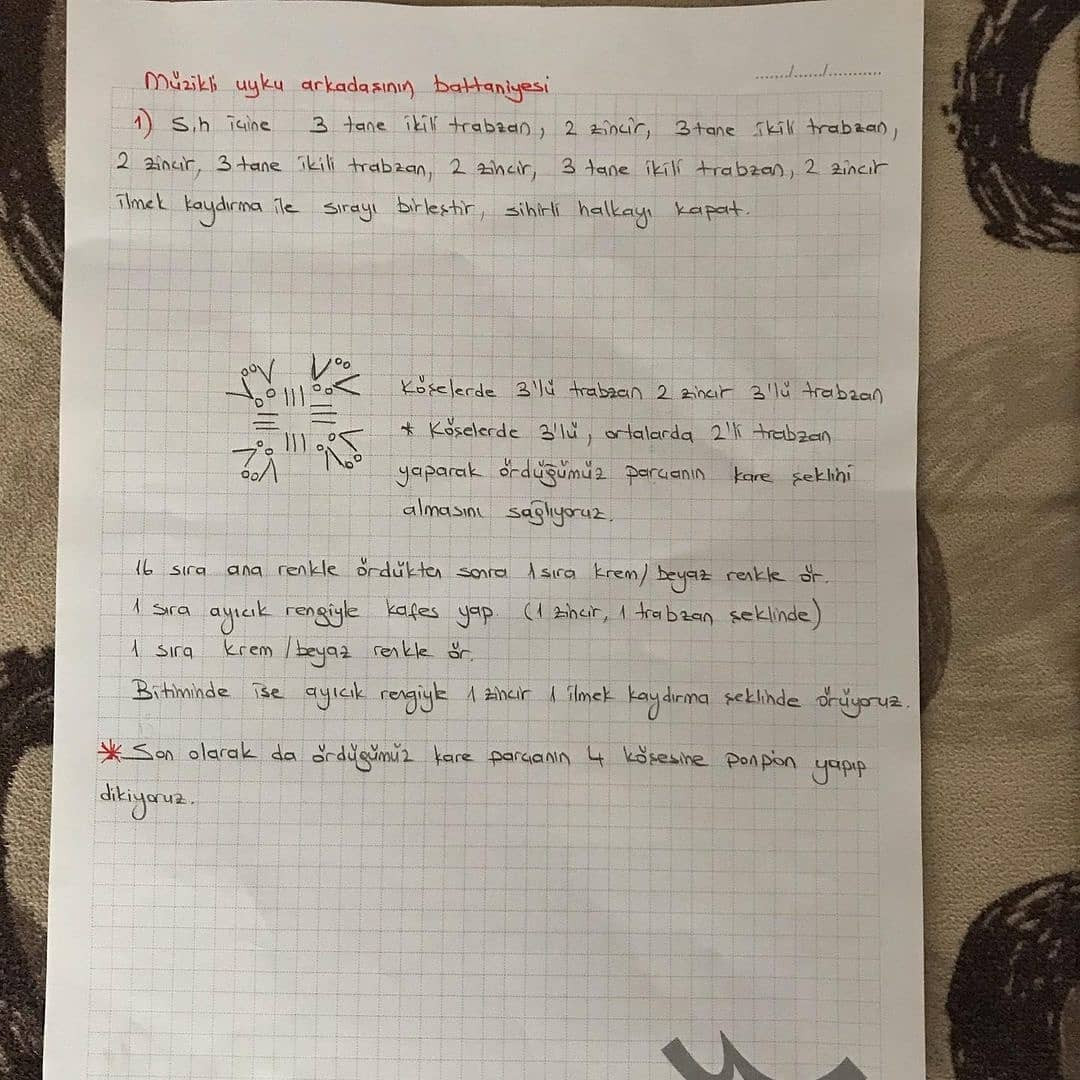 ......./......./...........
Müzikli uyku arkadaşının battaniyesi
1) S.h içine 3 tane ikili trabzan, 2 zincir, 3 tane ikili trabzan,
2 zincir, 3 tane ikili trabzan, 2 zincir, 3 tane ikili trabzan, 2 zincir
ilmek kaydırma ile sırayı birleştir, sihirli halkayı kapat.
Köşelerde 3'lü trabzan 2 zincir 3'lü trabzan
* Köşelerde 3'lü, ortalarda 2'li trabzan
yaparak ördüğümüz parçanın kare şeklini
almasını sağlıyoruz.
16 sıra ana renkle ördükten sonra 1 sıra krem/beyaz renkle ör.
1 sıra ayıcık rengiyle kafes yap (1 zincir, 1 trabzan şeklinde)
1 sıra krem/beyaz renkle ör.
Bitiminde ise ayıcık rengiyle 1 zincir 1 ilmek kaydırma şeklinde örüyoruz.
* Son olarak da ördüğümüz kare parçanın 4 köşesine ponpion yapıp
dikiyoruz.